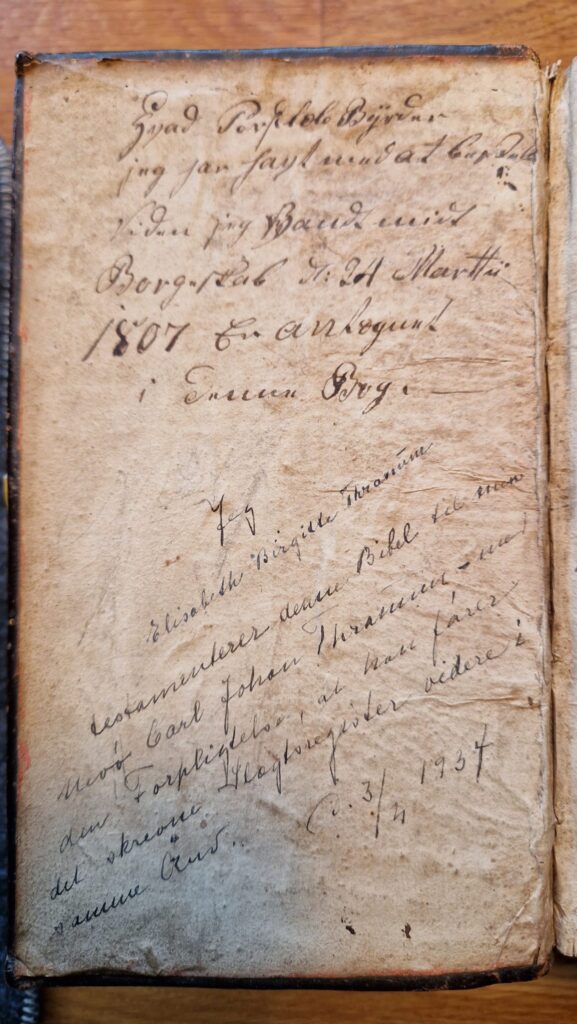 Hvad Borgerlæ Byrder
jeg har havt med at bestride
Siden jeg Vandt mit
Borgerskab d: 24 Martii
1807 Er antegnet
i denne Bog.
Jeg
Elisabeth Birgitte Thranum
testamenterer denne Bibel til min
Nevø Carl Johan Thranum - med
den Forpligtelse, at han fører
det skrevne Slægtsregister videre i
samme Ånd.
d. 3/4 1934